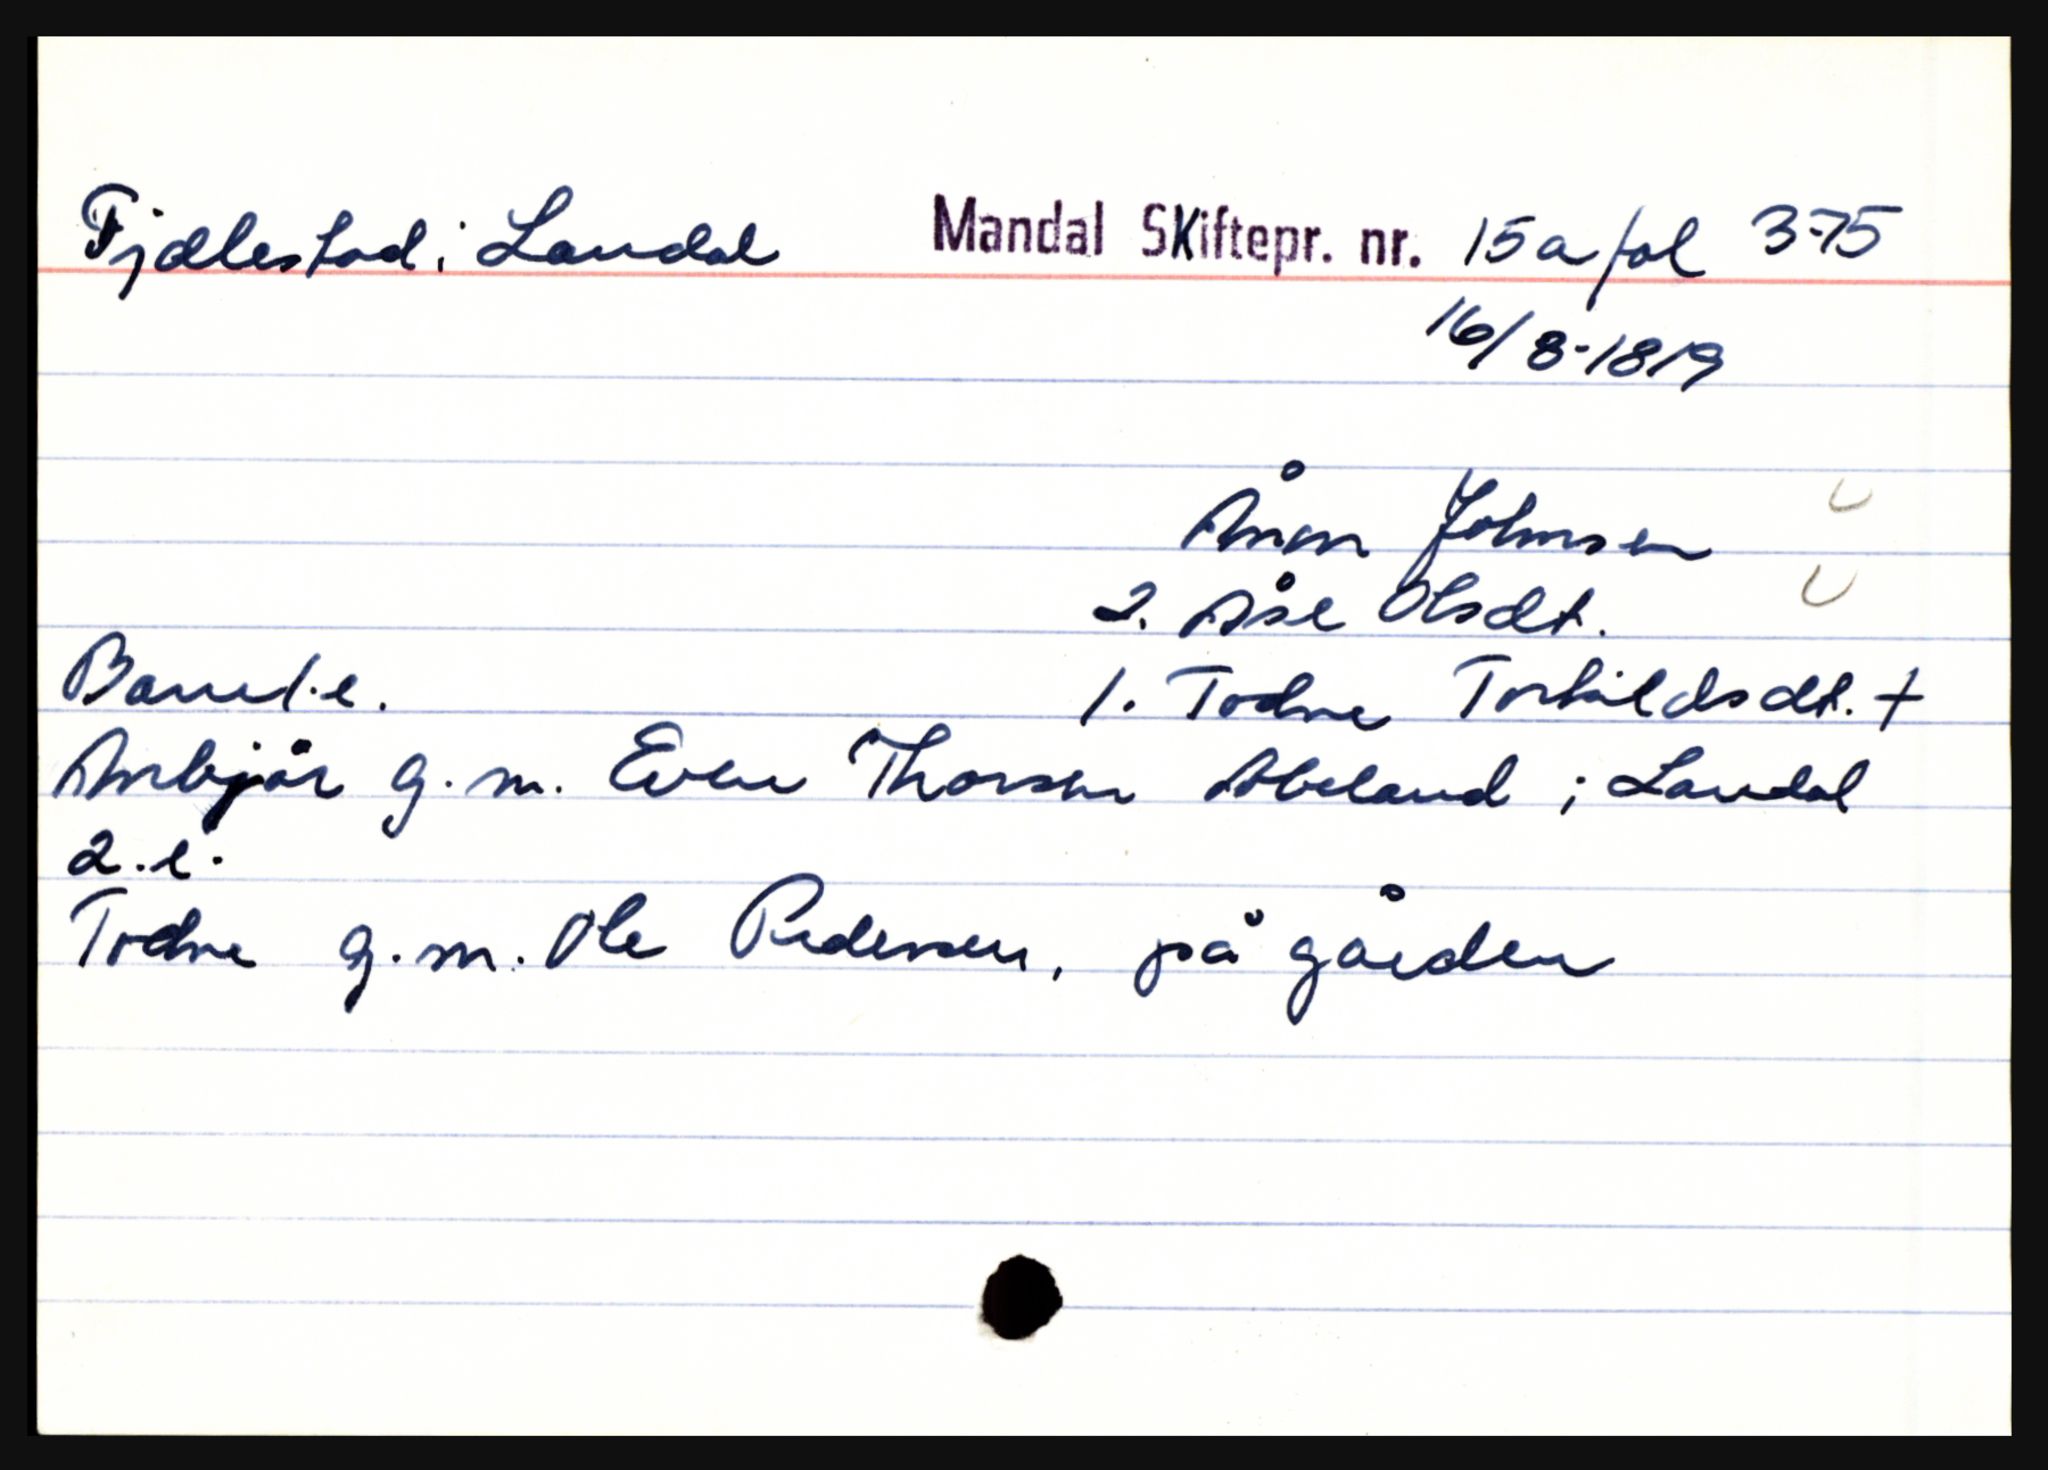 Fjellestad i Laudal Mandal Skiftepr. nr. 15 a fol 375
16/8-1819
Ånon Johnsen
2. Åse Olsdt.
Barn 1.e. 1. Todne Torkildsdt. +
Anbjør g.m. Even Thorsen Abeland i Laudal
2.e.
Todne g.m. Ole Pedersen, på gården